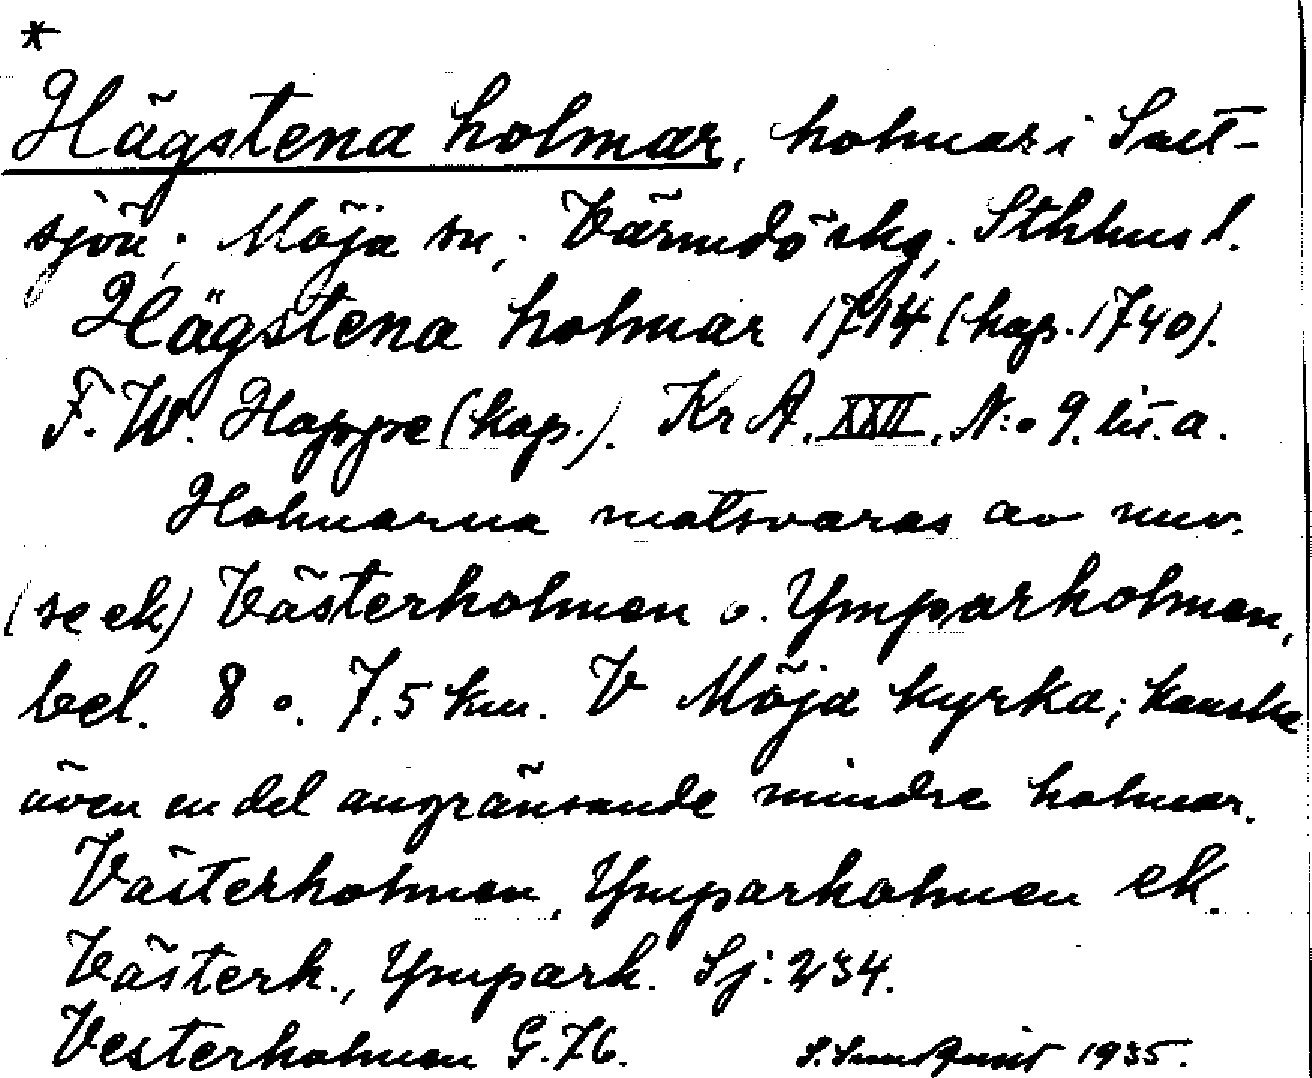 *
Hägstena holmar, holmar i Salt-
sjön; Möja sn, Värmdö skg, Sthlms l.
Hägstena holmar 1714 (kop. 1740).
F. W. Hoppe (kop.). KrA. XXII, N:o 9. lit. a.
Holmarna motsvaras av nuv.
(se ek) Västerholmen o. Ymparholmen,
bel. 8 o. 7.5 km. V Möja kyrka; kanske
även en del angränsande mindre holmar.
Västerholmen, Ymparholmen ek.
Västerh., Ymparh. Sj: 234.
Vesterholmen G.76. S. Sundqvist 1935.